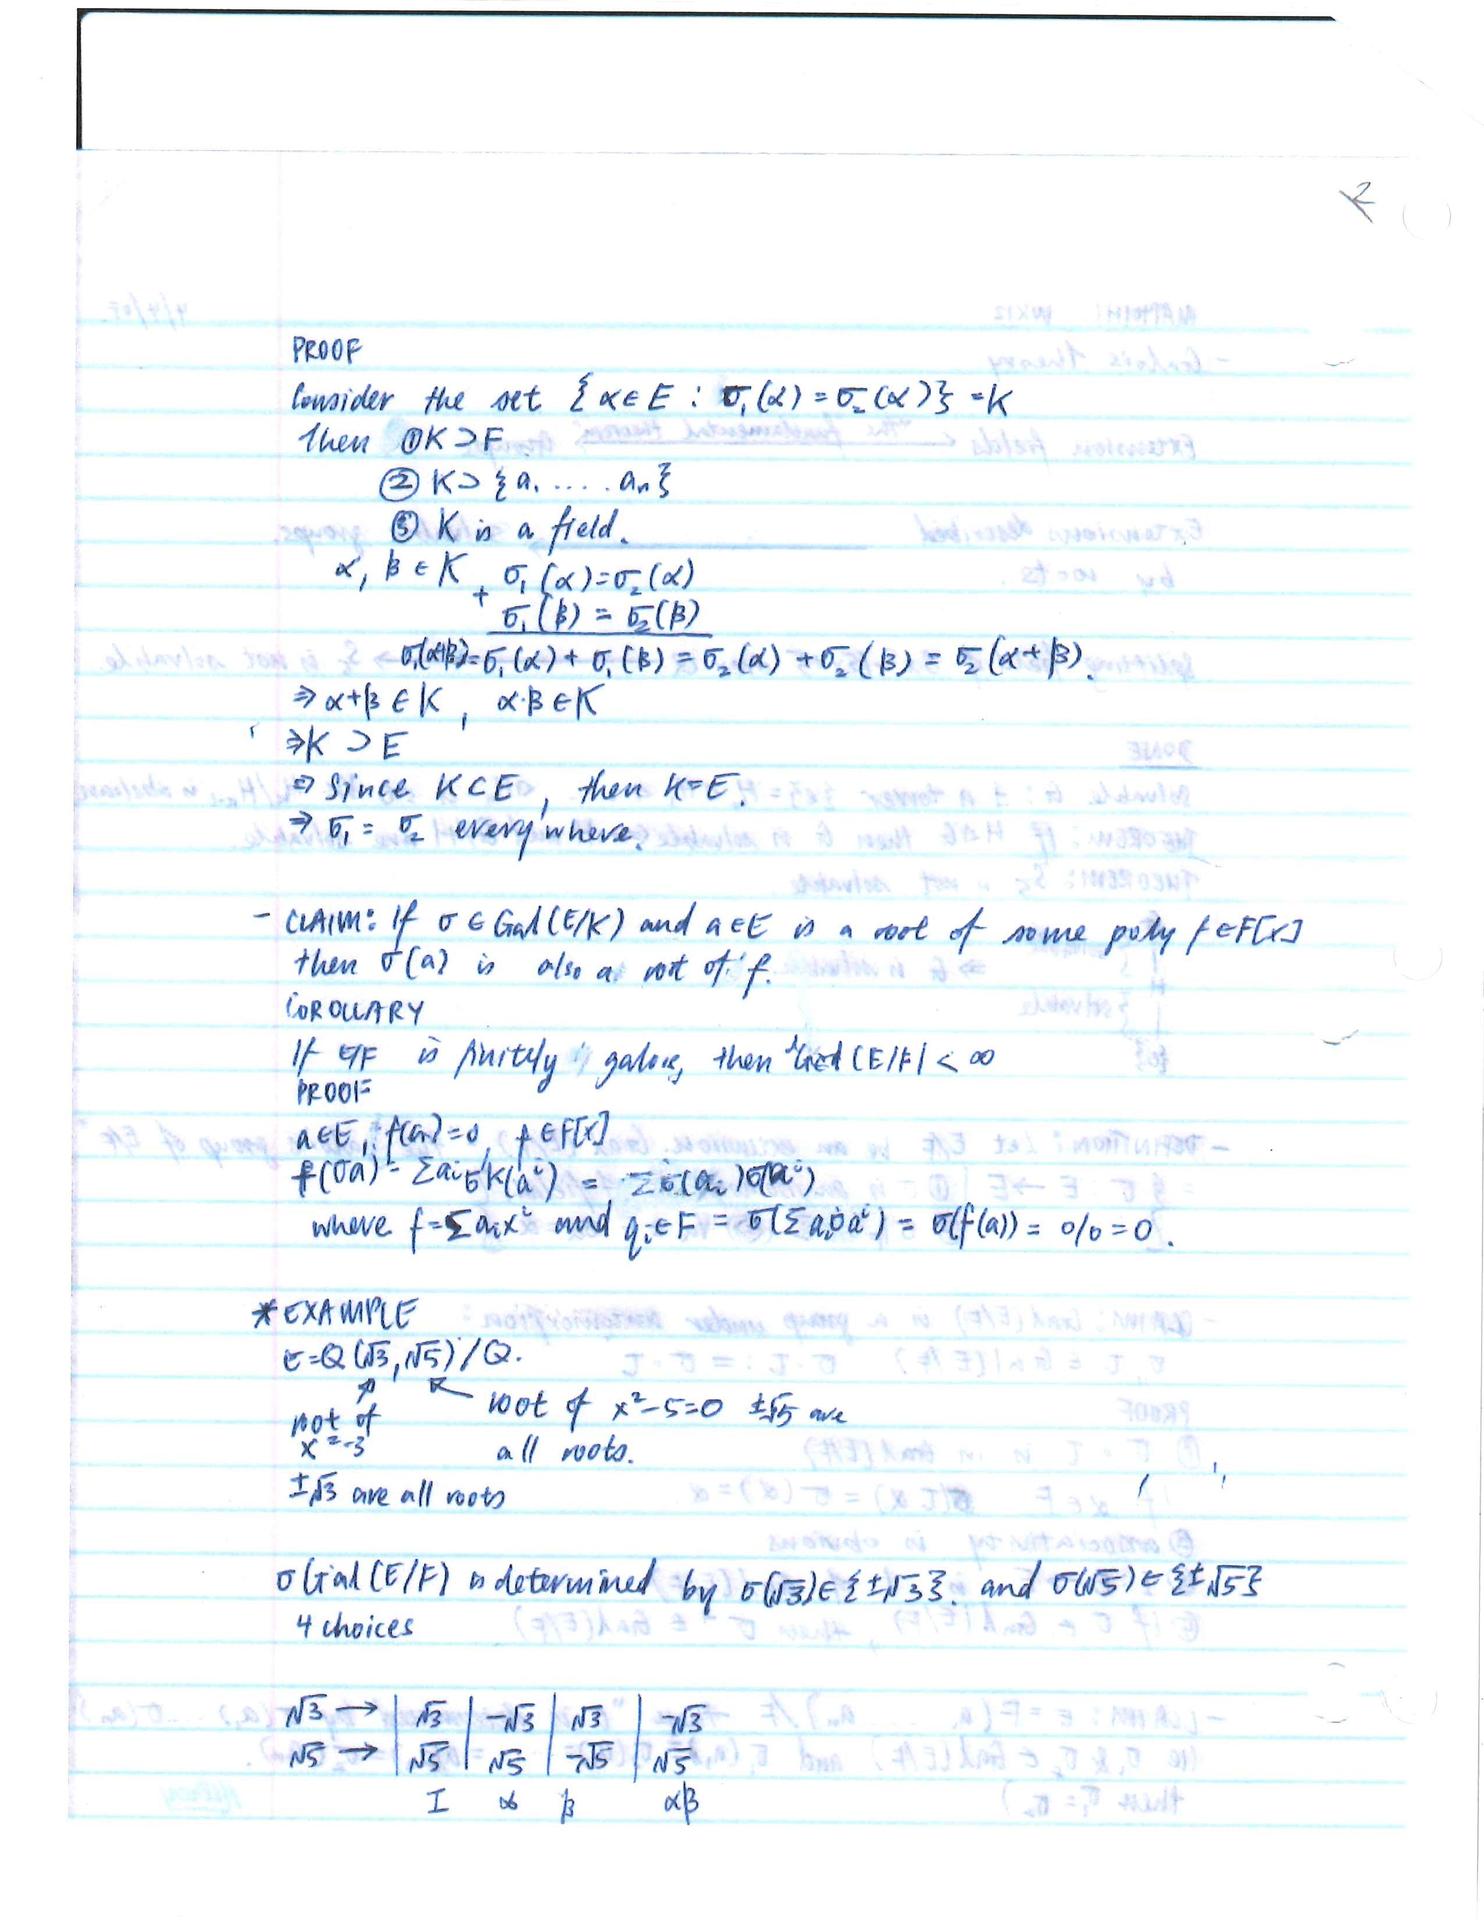 2
PROOF
Consider the set { α ∈ E : σ₁(α) = σ₂(α)} = K
Then ① K ⊃ F
② K ⊃ {a, .... aₙ}
③ K is a field.
α, β ∈ K, σ₁(α) = σ₂(α)
+ σ₁(β) = σ₂(β)
σ₁(α+β) = σ₁(α) + σ₁(β) = σ₂(α) + σ₂(β) = σ₂(α+β).
⇒ α+β ∈ K, α·β ∈ K
⇒ K ⊃ E
⇒ Since K ⊂ E, then K = E.
⇒ σ₁ = σ₂ everywhere.
- CLAIM: If σ ∈ Gal(E/K) and a ∈ E is a root of some poly f ∈ F[x]
then σ(a) is also a root of f.
COROLLARY
If E/F is finitely galois, then Gal(E/F) < ∞
PROOF
a ∈ E, f(a) = 0, f ∈ F[x]
f(σa) = Σaᵢσ(aⁱ) = Σσ(aᵢ)σ(aⁱ)
where f = Σaᵢxⁱ and aᵢ ∈ F = σ(Σaᵢaⁱ) = σ(f(a)) = 0/0 = 0.
* EXAMPLE
E = Q(√3, √5)/Q.
root of x²-5=0 ±√5 are
root of
x²-3
all roots.
±√3 are all roots
σ Gal(E/F) is determined by σ(√3) ∈ {±√3}. and σ(√5) ∈ {±√5}
4 choices
√3 → | √3 | -√3 | √3 | -√3
√5 → | √5 | √5 | -√5 | √5
I α β αβ